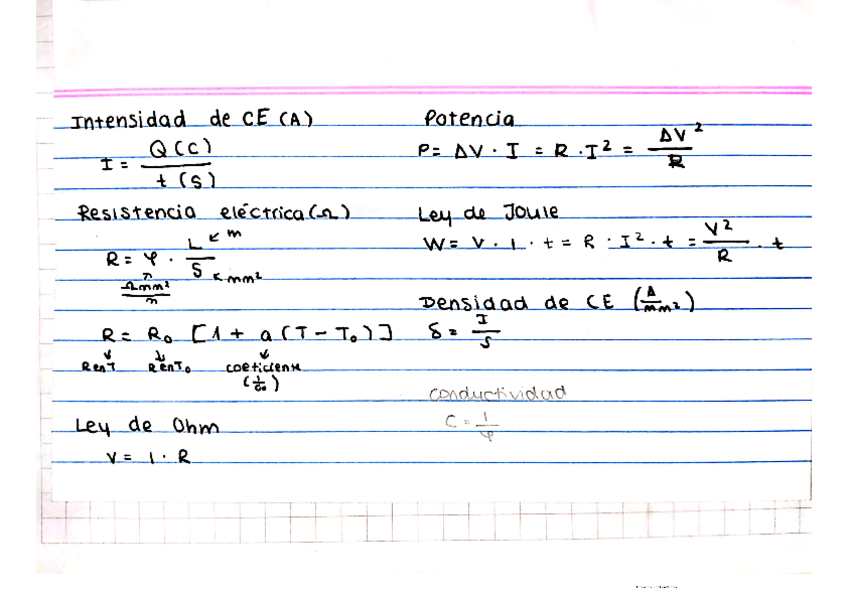 Intensidad de CE (A)
I = Q (C) / t (S)
Resistencia eléctrica (Ω)
R = φ · L / S
m
mm²
Ωmm² / m
R = R₀ [1 + a (T - T₀)]
R en T
R en T₀
coeficiente
Ley de Ohm
V = I · R
Potencia
P = ΔV · I = R · I² = ΔV² / R
Ley de Joule
W = V · I · t = R · I² · t = V² / R · t
Densidad de CE (A / mm²)
δ = I / S
conductividad
C = 1 / φ